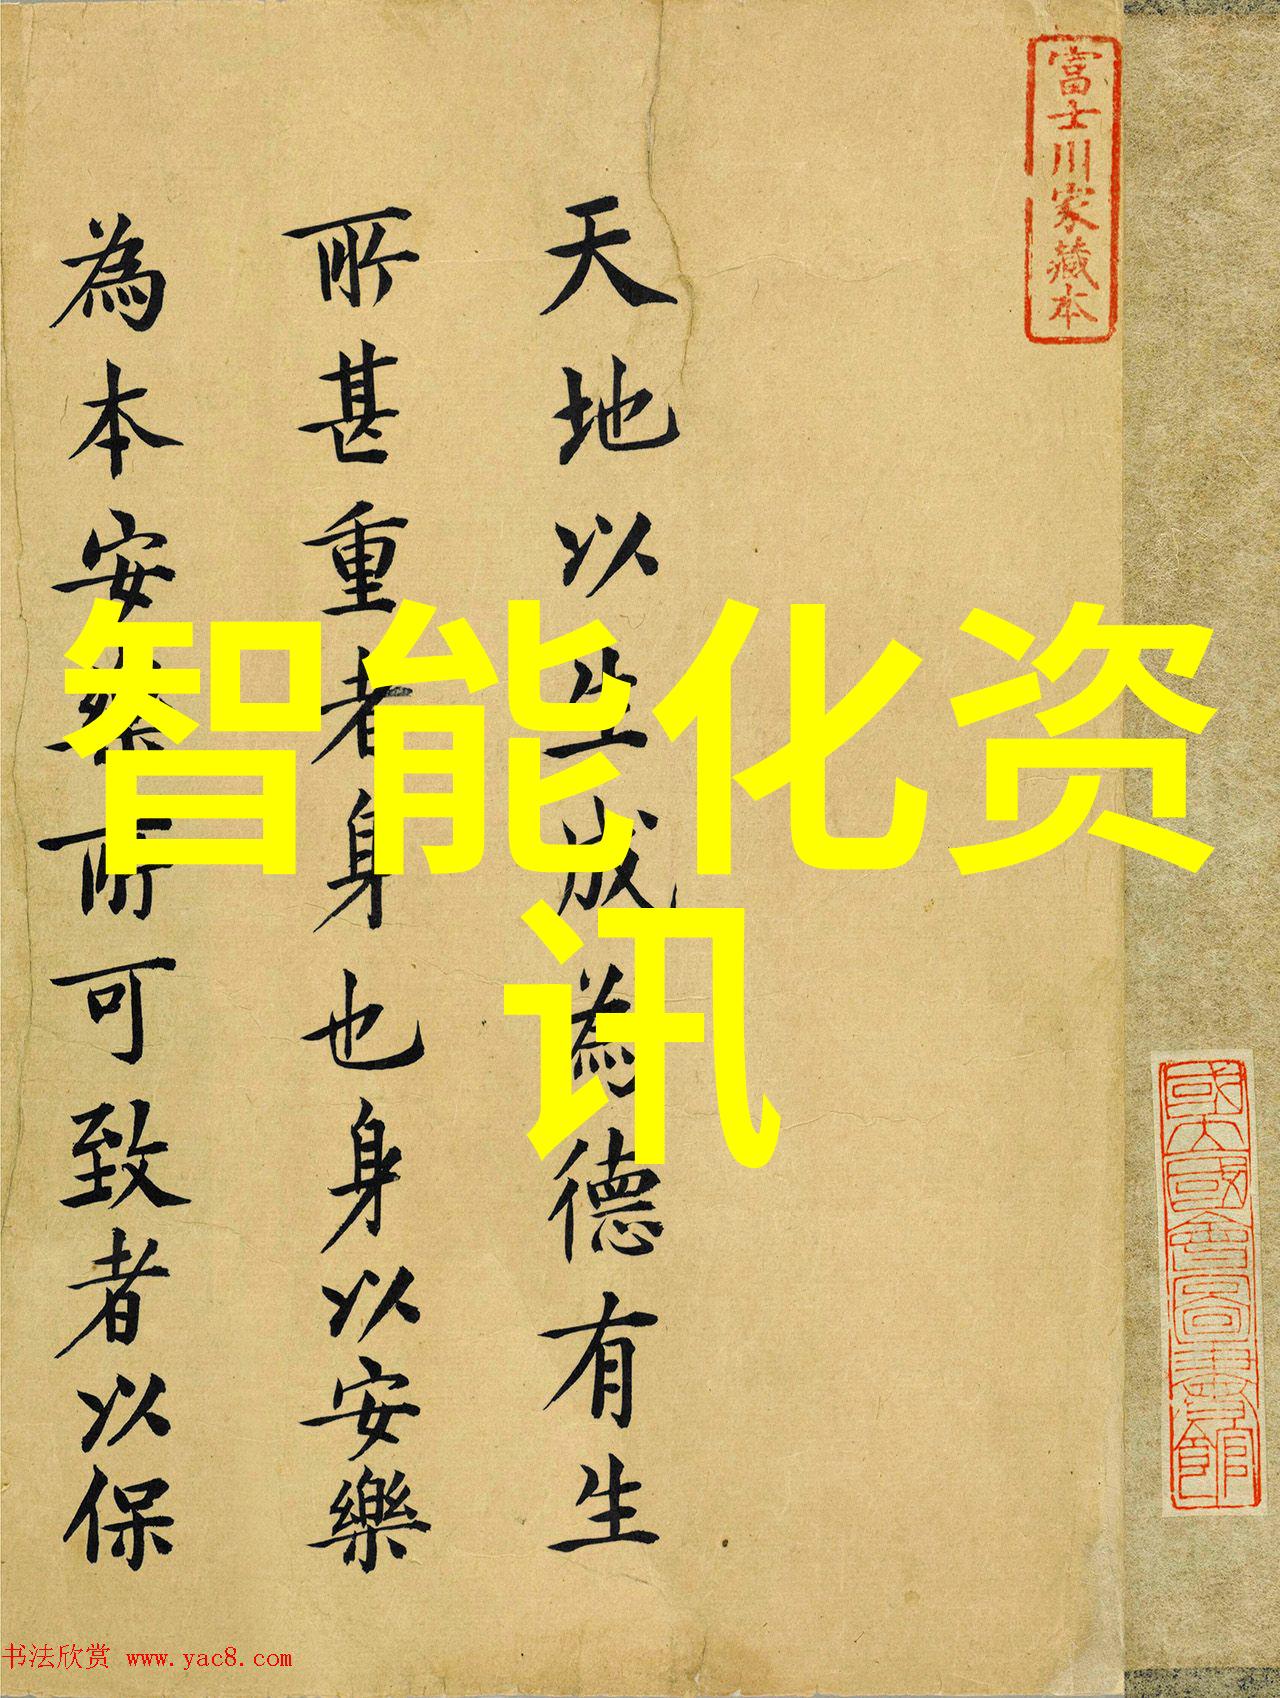 富士川家藏本
天地以生成為德有生
所甚重者身也身以安樂
為本安樂所可致者以保
智能化资
讯
國立國會圖書館
书法欣赏 www.yac8.com